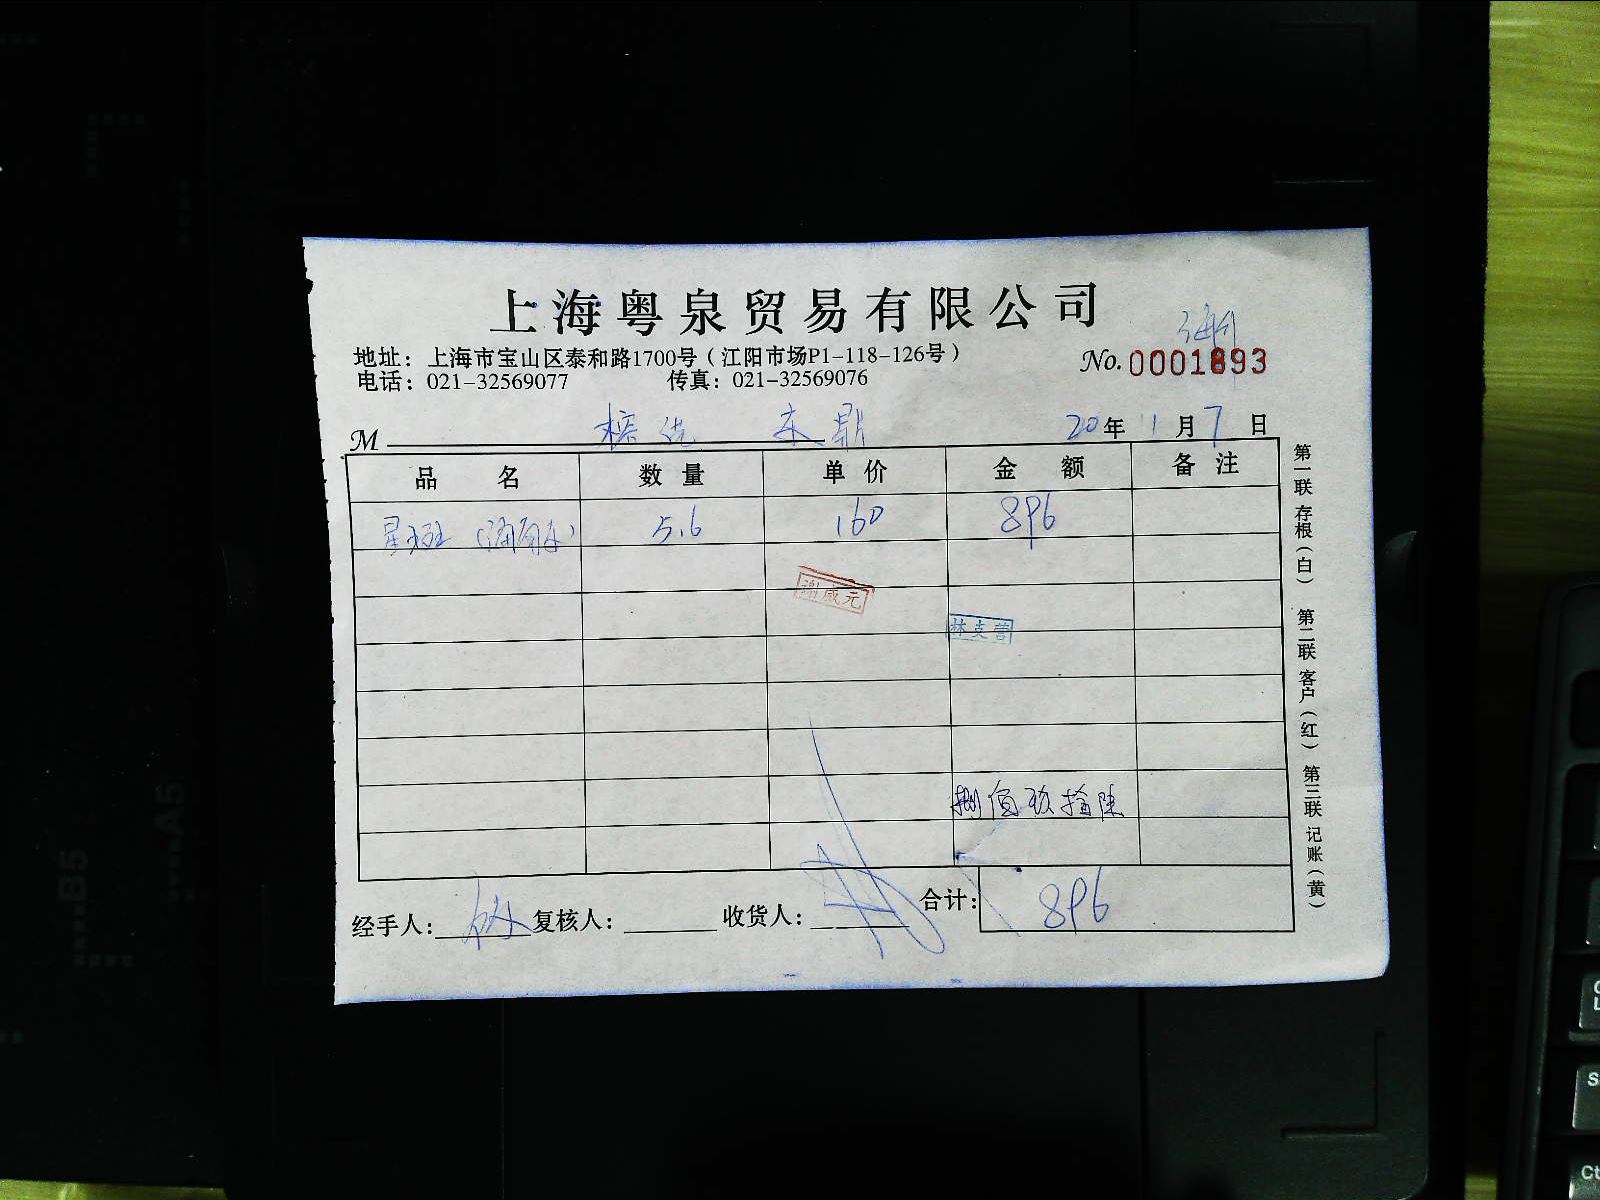 上海粤泉贸易有限公司
地址：上海市宝山区泰和路1700号（江阳市场P1-118-126号）
No.0001893
电话：021-32569077 传真：021-32569076
M 鼎 20年11月7日
品名 数量 单价 金额 备注
星斑 5.6 160 896
谢咸元
捌佰玖拾陆
经手人： 复核人： 收货人： 合计：896
第一联 存根（白） 第二联 客户（红） 第三联 记账（黄）
B5
A5